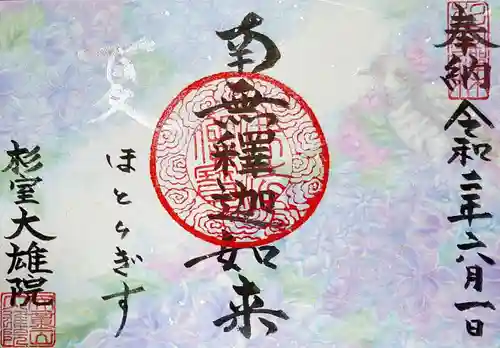 奉納
令和二年六月一日
南無釋迦如来
夏
ほとゝぎす
杉室大雄院